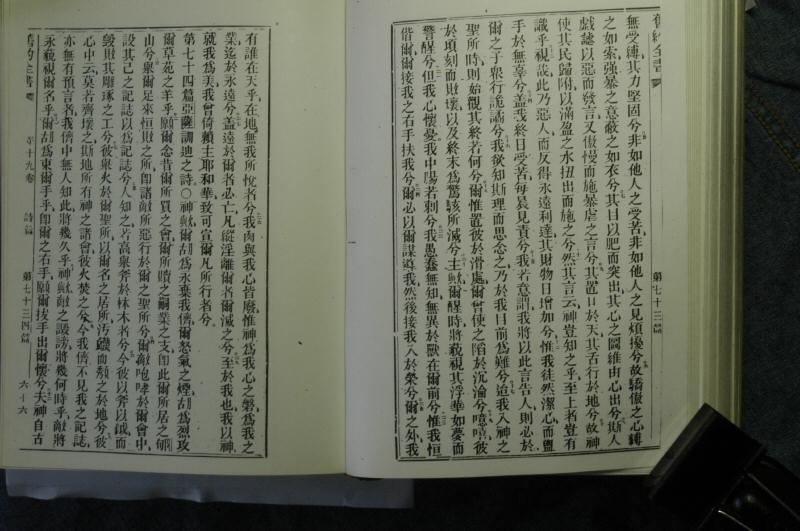 舊約全書
第七十三篇
無受縛其力堅固兮非如他人之受苦非如他人之見煩擾兮故驕傲之心縛
之如索強暴之意蔽之如衣兮其目以肥而突出其心之圖維由心出兮斯人
戲謔以惡而發言又傲慢而施暴虐之言兮其置口於天其舌行於地兮故神
使其民歸附以滿盈之水扭出而施之兮然其言云神豈知之乎至上者豈有
識乎視哉此乃惡人而反得永遠利達其財物日增加兮惟我徒然潔心而盥
手於無辜兮蓋我終日受苦每晨見責兮我若意謂我將以此言告人則必於
爾之子羣行詭譎兮我欲知斯理而思念之乃於我目前為難兮迨我入神之
聖所時則始觀其終若何兮爾惟置彼於滑處爾曾使之陷於沉淪兮噫嘻彼
於頃刻而敗壞以及終末為驚駭所滅兮主歟爾醒時將藐視其浮華如夢而
警醒兮但我心懷憂我中腸若刺兮我愚蠢無知無異於獸在爾前兮惟我恒
偕爾爾接我之右手扶我兮爾必以爾謀導我然後接我入於榮兮爾之外我
有誰在天乎在地無我所悅者兮我肉與我心皆廢惟神為我心之磐為我之
業迄於永遠兮蓋遠於爾者必亡凡縱淫離爾者爾滅之兮至於我也我以神
就我為美我曾倚賴主耶和華致可宣爾凡所行者兮
第七十四篇亞薩訓迪之詩〇神歟爾胡為永棄我儕爾怒氣之煙胡為烈攻
爾草苑之羊乎願爾念昔爾所買之會爾所贖之嗣業之支即此爾所居之郇
山兮舉爾足來恒敗之所即諸敵所惡行於爾之聖所兮爾敵咆哮於爾會中
設其己之記誌以為記誌兮人知之若高舉斧於林木者兮今彼以斧以鉞而
毀則其雕琢之工兮彼舉火於爾聖所以爾名之居所污衊而頹之於地兮彼
心中云莫若齊壞之斯地所有神之諸會彼火焚之兮今我儕不見我之記誌
亦無有預言者我儕中無人知此將幾久乎神歟敵之譭謗將幾何時乎敵將
永藐視爾名乎爾胡為束爾手乎即爾之右手願爾拔手出爾懷兮夫神自古
舊約全書
第十九卷
詩篇
第七十三四篇
六十六